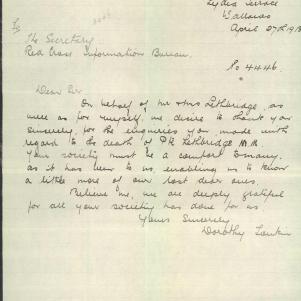 Lydia Terrace
Wallaroo
April 27th 191
To
The Secretary
Red Cross Information Bureau.
No 4446.
Dear Sir
On behalf of Mr & Mrs Lethbridge, as
well as for myself, we desire to thank you
sincerely, for the enquiries you made with
regard to the death of Pte Lethbridge M.M.
Your society must be a comfort to many,
as it has been to us, enabling us to know
a little more of our lost dear ones.
Believe me, we are deeply grateful
for all your society has done for us
Yours Sincerely
Dorothy